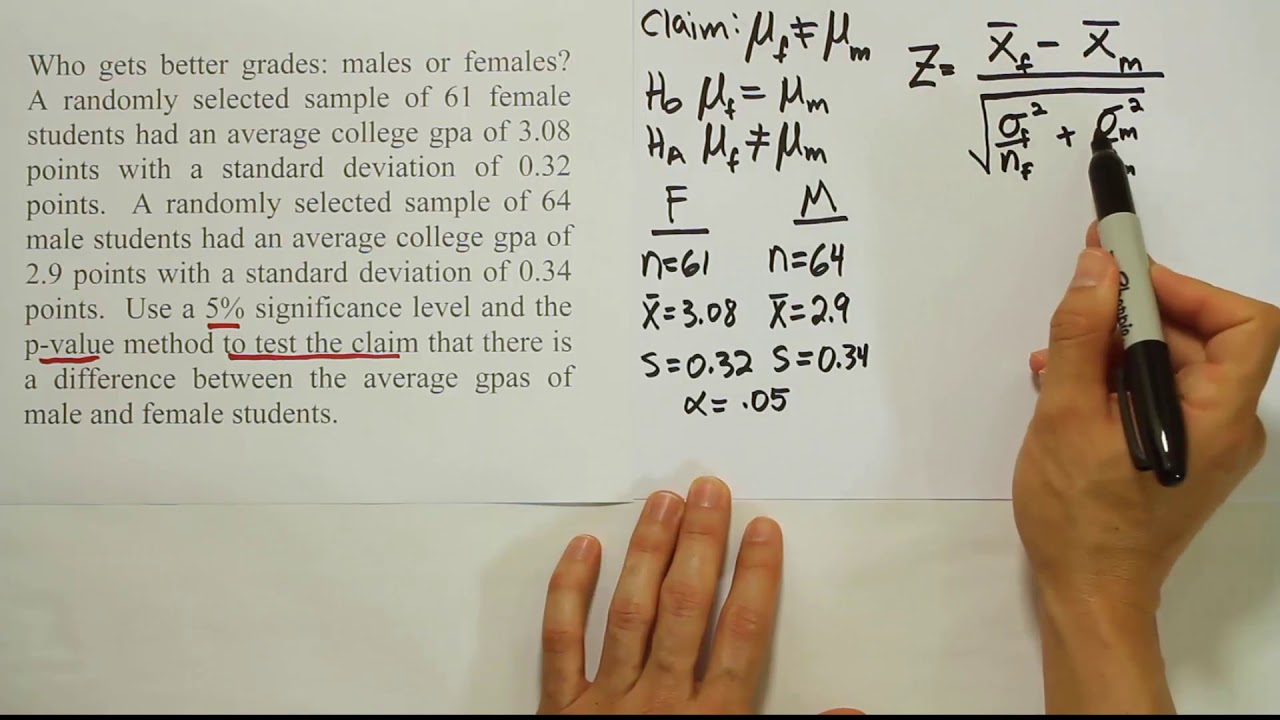 Who gets better grades: males or females?
A randomly selected sample of 61 female
students had an average college gpa of 3.08
points with a standard deviation of 0.32
points. A randomly selected sample of 64
male students had an average college gpa of
2.9 points with a standard deviation of 0.34
points. Use a 5% significance level and the
p-value method to test the claim that there is
a difference between the average gpas of
male and female students.
Claim: μf ≠ μm
H₀ μf = μm
Hᴀ μf ≠ μm
F M
n=61 n=64
x̄=3.08 x̄=2.9
s=0.32 s=0.34
α=.05
Z= x̄f − x̄m
√ σf² + σm²
nf